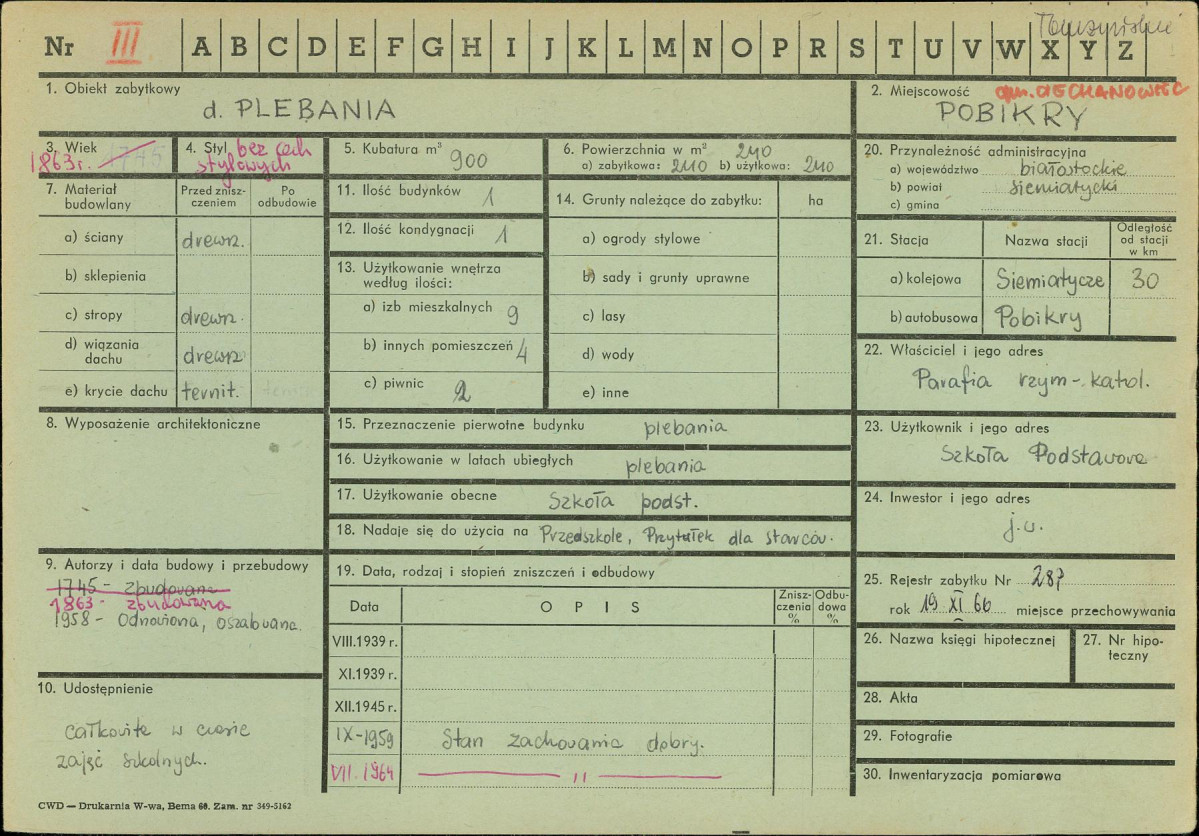 Nr III A B C D E F G H I J K L M N O P R S T U V W X Y Z
1. Obiekt zabytkowy
d. PLEBANIA
2. Miejscowość
gm. CIECHANOWIEC
POBIKRY
3. Wiek
1863r. 1745
4. Styl bez cech
stylowych
5. Kubatura m³
900
6. Powierzchnia w m² 240
a) zabytkowa: 240 b) użytkowa: 240
20. Przynależność administracyjna
a) województwo białostockie
b) powiat siemiatycki
c) gmina
7. Materiał budowlany
Przed zniszczeniem
Po odbudowie
a) ściany drewn.
b) sklepienia
c) stropy drewn.
d) wiązania dachu drewn
e) krycie dachu ternit.
11. Ilość budynków 1
12. Ilość kondygnacji 1
13. Użytkowanie wnętrza
według ilości:
a) izb mieszkalnych 9
b) innych pomieszczeń 4
c) piwnic 2
14. Grunty należące do zabytku: ha
a) ogrody stylowe
b) sady i grunty uprawne
c) lasy
d) wody
e) inne
21. Stacja
Nazwa stacji
Odległość od stacji w km
a) kolejowa Siemiatycze 30
b) autobusowa Pobikry
22. Właściciel i jego adres
Parafia rzym-. katol.
8. Wyposażenie architektoniczne
15. Przeznaczenie pierwotne budynku plebania
16. Użytkowanie w latach ubiegłych plebania
17. Użytkowanie obecne Szkoła podst.
18. Nadaje się do użycia na Przedszkole, Przytułek dla starców.
23. Użytkownik i jego adres
Szkoła Podstawowa
24. Inwestor i jego adres
j.w.
9. Autorzy i data budowy i przebudowy
1745 - zbudowana
1863 - zbudowana
1958 - Odnowiona, oszalowana.
10. Udostępnienie
całkowite w czasie
zajęć szkolnych.
19. Data, rodzaj i stopień zniszczeń i odbudowy
Data
O P I S
Zniszczenia %
Odbudowa %
VIII.1939 r.
XI.1939 r.
XII.1945 r.
IX-1959 Stan zachowania dobry.
VII. 1964 — 11 —
25. Rejestr zabytku Nr 287
rok 19 XI 66 miejsce przechowywania
26. Nazwa księgi hipotecznej
27. Nr hipoteczny
28. Akta
29. Fotografie
30. Inwentaryzacja pomiarowa
CWD — Drukarnia W-wa, Bema 60. Zam. nr 349-5162